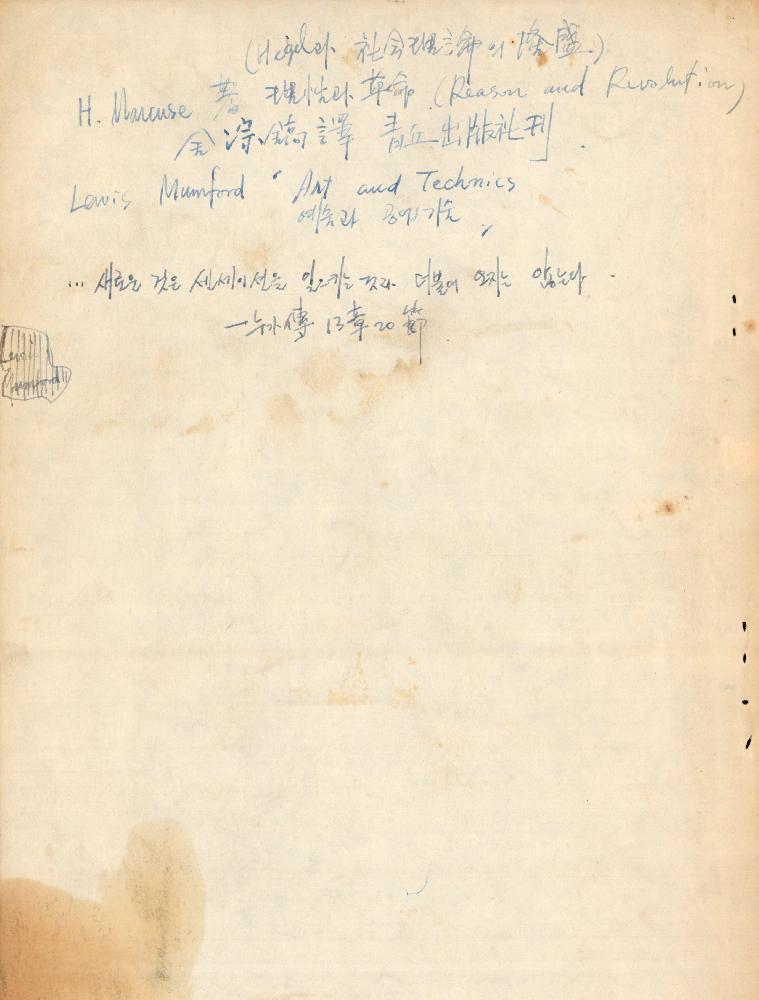 (Hegel과 社会理論의 隆盛.)
H. Marcuse 著 理性과 革命 (Reason and Revolution)
金淙鎬 譯 青丘出版社刊.
Lewis Mumford "Art and Technics
예술과 공예기술"
... 새로운 것은 센세이션을 일으키는 것과 더불어 오지는 않는다.
—누가傳 13章 20節
Lewis
Mumford